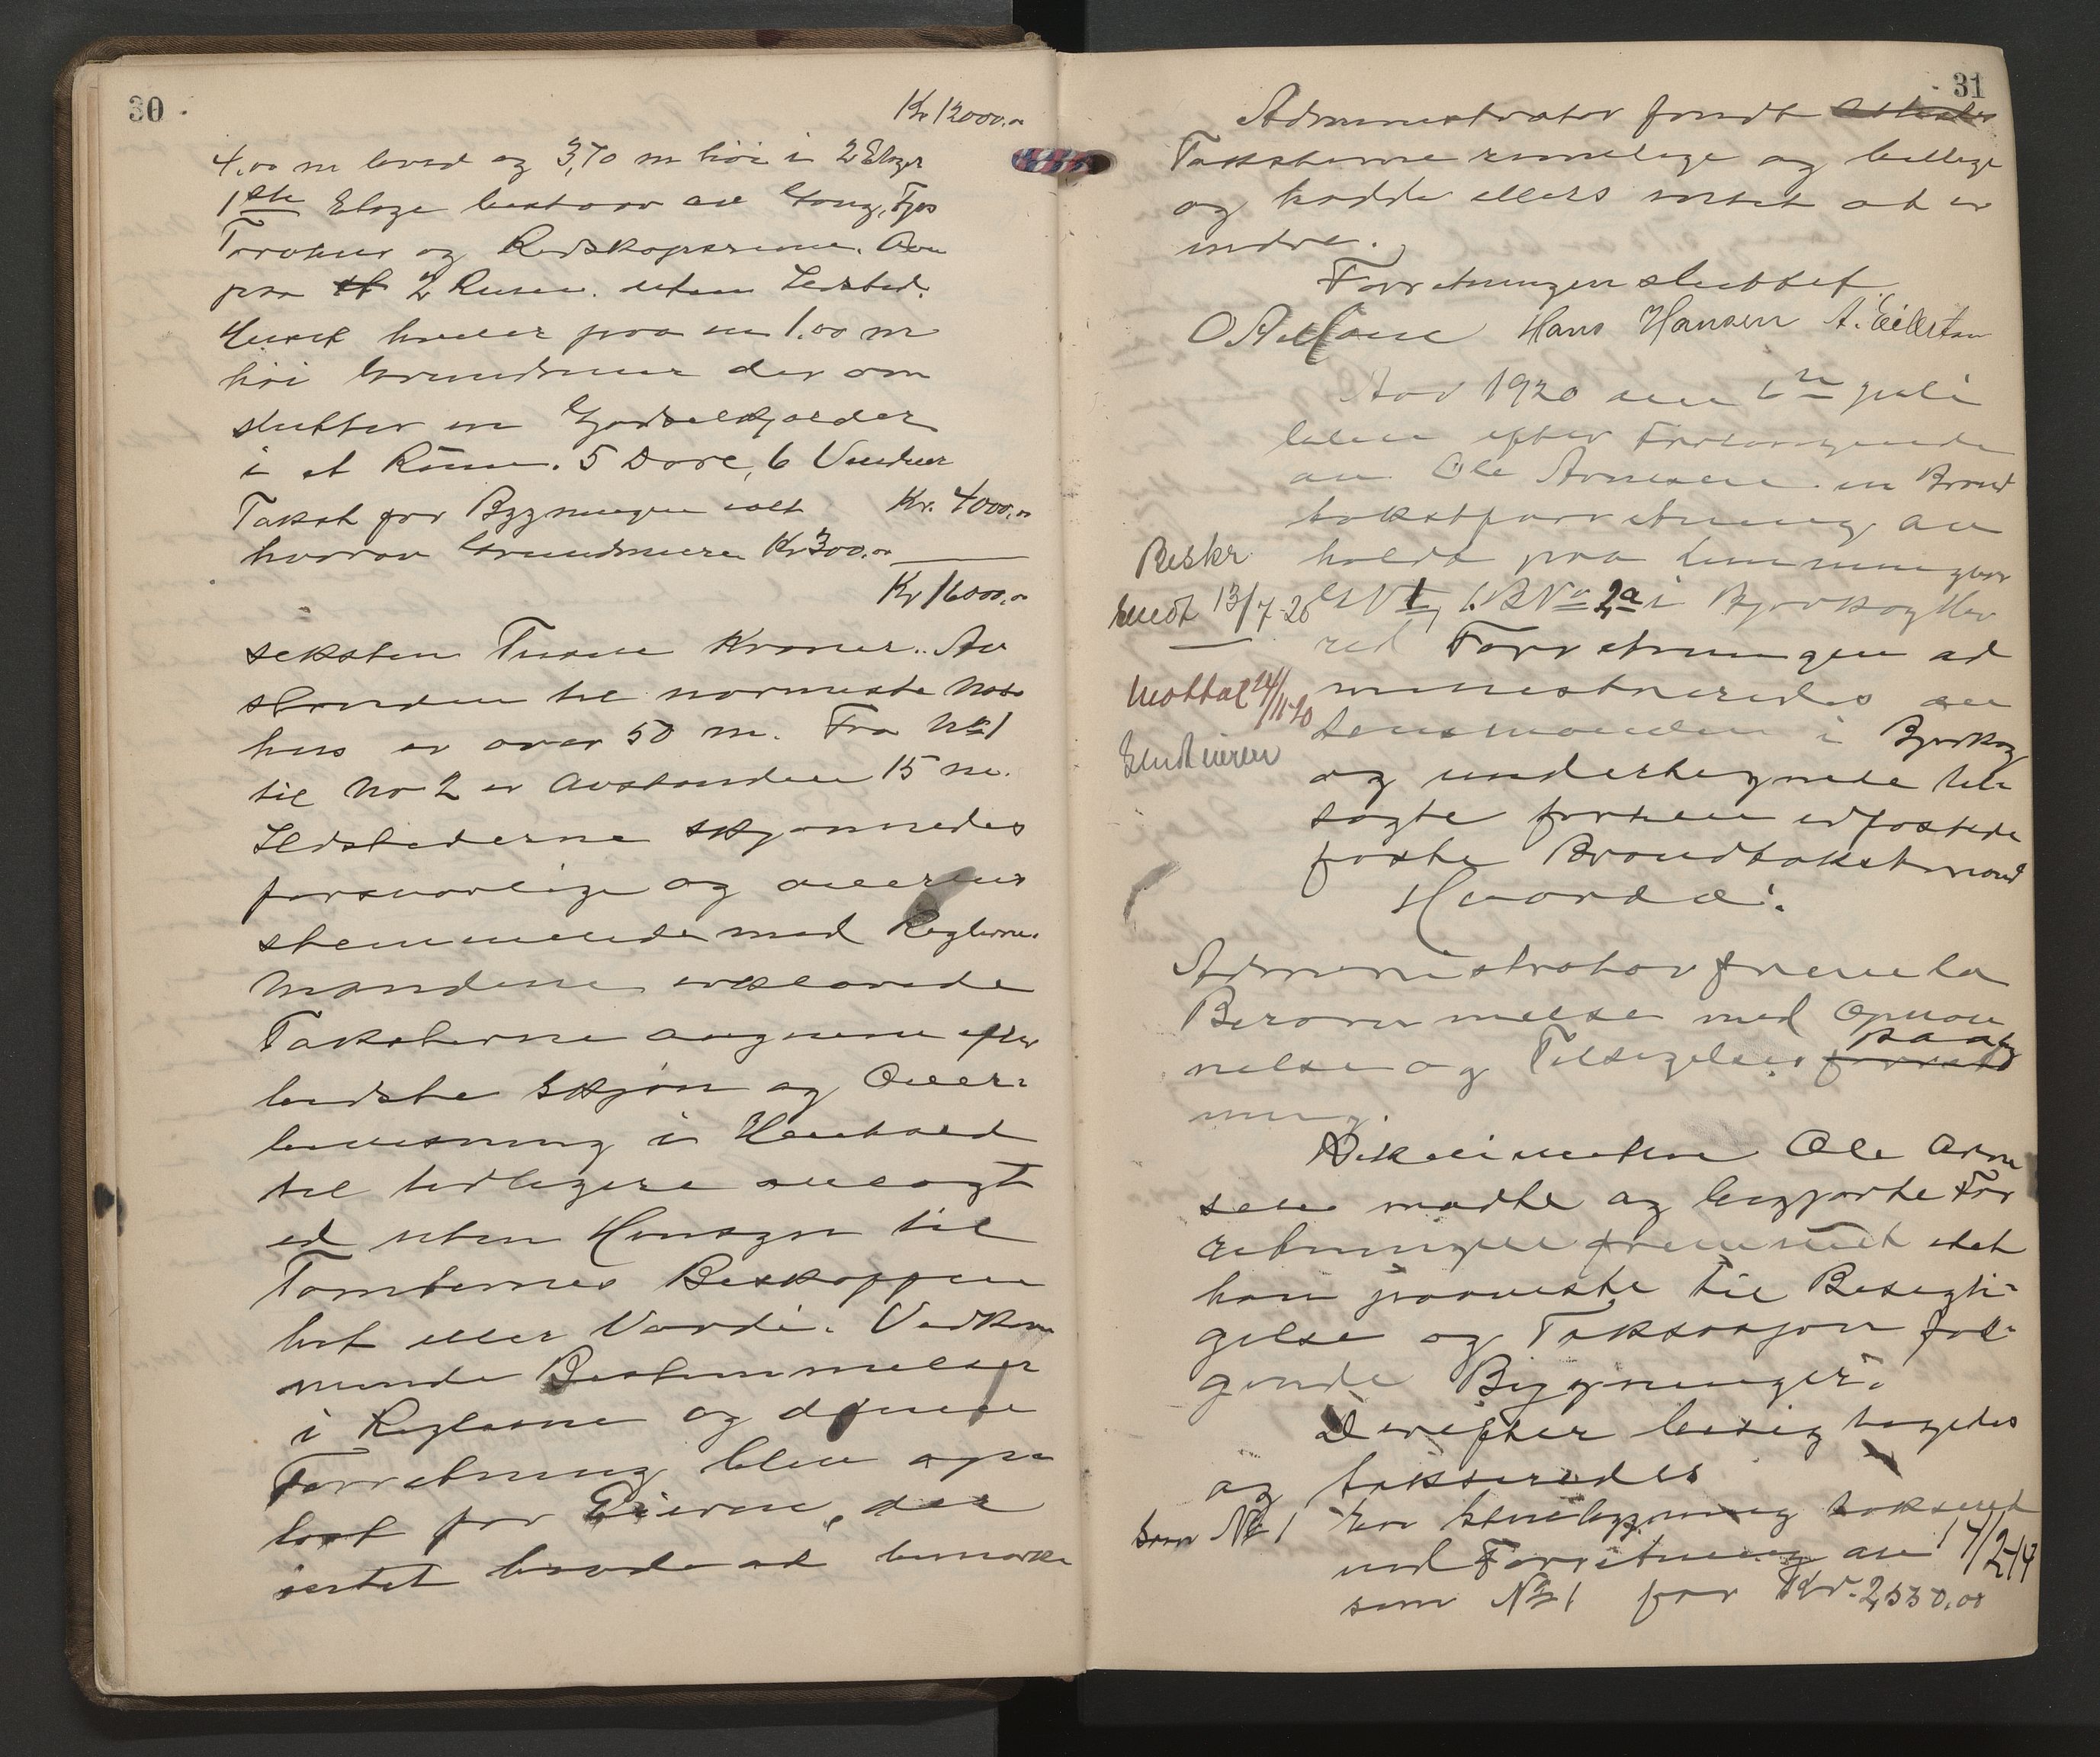 30
Kr 12000.00
4.00 m bred og 3,70 m høi i 2 Etager
1ste Etage bestaar av Gang, Fjøs
og Redskapsrum. Oven
paa 2 Rum. uten Ildsted.
Huset hviler paa en 1.00 m
høi Grundmur der om
slutter en Gjødselkjælder
i et Rum. 5 Døre, 6 Vinduer
Takst for Bygningen ialt Kr. 4000.00
hvorav Grundmuren Kr 300.00
Kr 16000.00
seksten Tusen Kroner. Av
standen til nærmeste Nabo
hus er over 50 m. Fra No 1
til No 2 er Avstanden 15 m.
Ildstederne skjønnedes
forsvarlige og overens
stemmende med Reglerne.
Mændene erklærede
Taksterne avgivne efter
bedste Skjøn og Over-
bevisning i Henhold
til tidligere avlagt
ed uten Hensyn til
Tomternes Beskaffen
het eller Værdi. Vedkom
mende Bestemmelser
i Reglerne og denne
Forretning blev op
læst for Eieren, der
intet havde at bemærke
31
Administrator fandt
Taksterne rimelige og billige
og hadde ellers intet at er
indre.
Forretningen sluttet
Hans Hansen A. Eilertsen
Aar 1920 den 6te juli
blev efter Forlangende
av Ole Arnesen en Brand
takstforretning av
holdt paa
G No 1, B No 2a i Bjarkøy Her
red Forretningen ad
ministreredes av
Lensmanden i Bjarkøy
og undertegnede til
sagte forhen edfæstede
faste Brandtakstmænd
Beskr.
sendt 13/7-20
Mottat 24/11-20
Hvorda:
Administrator fremla
Berammelse med Opnæv
nelse og Tilsigelses paateg
forret
ning.
Rekvirenten Ole Arne
sen mødte og begjærte For
retningen fremmet idet
han paaviste til Besigti-
gelse og Taksasjon føl-
gende Bygninger:
Derefter besigtigedes
og taksseredes
som No 1 En Stuebygning taksert
ved Forretning av 17/2-14
som No 1 for Kr. 2,550.00